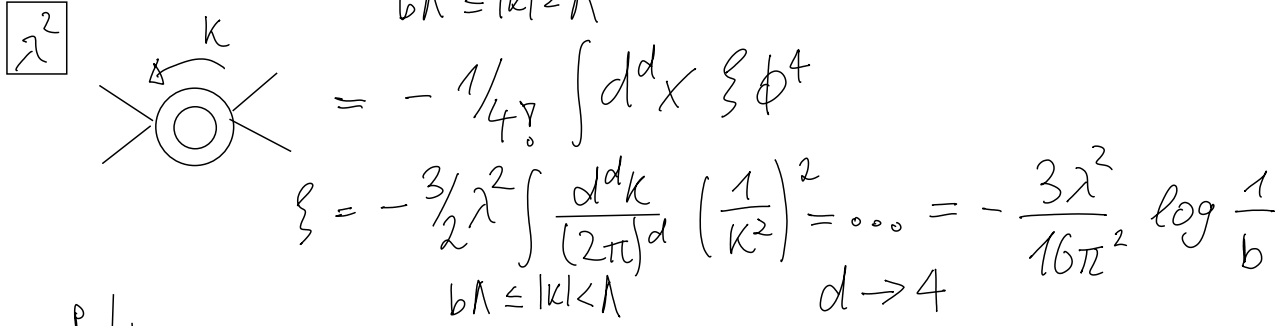 bΛ ≤ |k| < Λ
λ² K = - 1/4! ∫ d^d x ξ ϕ⁴
ξ = - 3/2 λ² ∫ d^d k / (2π)^d (1/k²)² = ... = - 3λ² / 16π² log 1/b
bΛ ≤ |k| < Λ d → 4